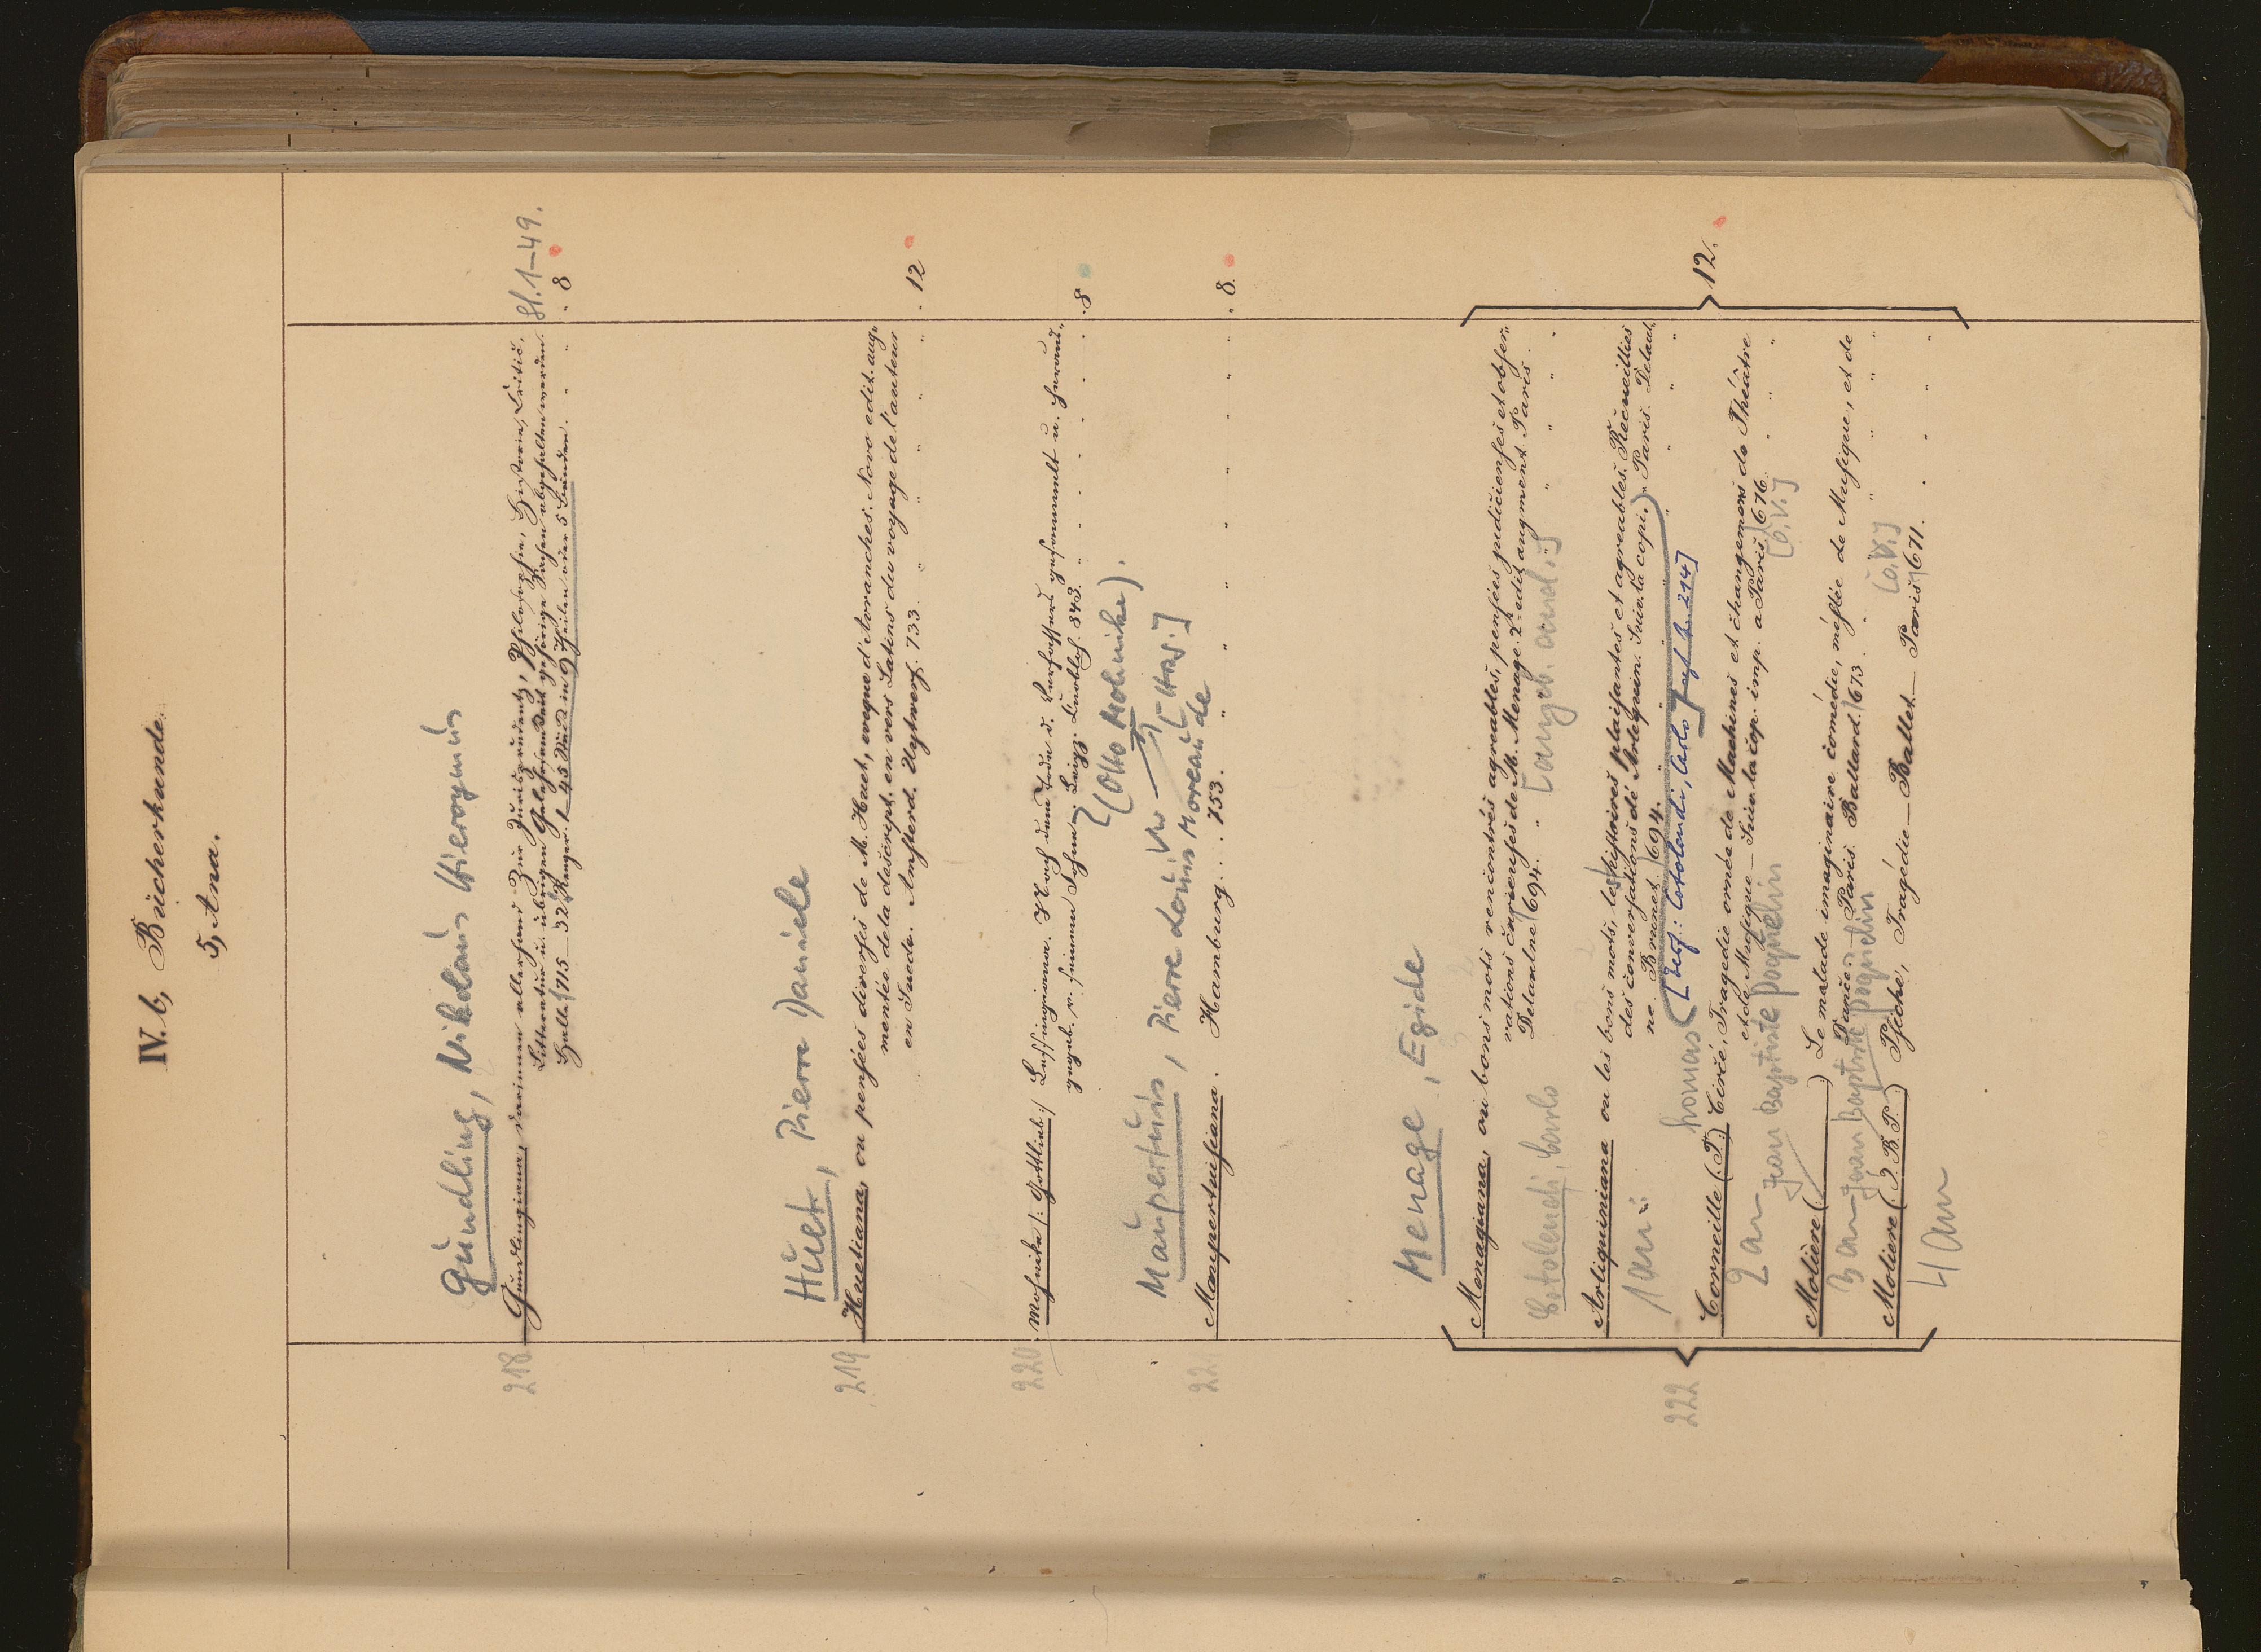 IV. b, Bücherkunde.
5, Ana.
Gundling, Nikolaus Hieronymus
218
Gundlingiana, darinnen allerhand zur Jurisprudentz, Philosophie, Historie, Critic,
Litteratur u. übrigen Gelehrsamkeit gehörige Sachen abgehandelt werden.
Halle 715–32 Renger. 45 Stück in 9 Theilen oder 5 Bänden.
St. 1–49.
8
Huet, Pierre Daniele
219
Huetiana, ou pensées diverses de M. Huet, eveque d'Avranches. Novo edit. aug=
mentée de la descript. en vers Latins du voyage de l'auteur
en Suede. Amsterd. Uytwerf. 733.
12
220
Mohnike (: Gottlieb:) Lessingiana. Nach dem Tode d. Verfassers gesammelt u. heraus=
gegeb. v. seinem Sohne. Leipz. 843.
8
(Otto Mohnike).
Maupertuis, Pierre Louis Moreau de
221
Maupertuisiana. Hamburg. 753.
8.
Menage, Egide
222
Menagiana, ou bons mots rencontrés agreables, pensées judicienses et obser=
vations curieuses de M. Menage. 2. edit augment. Paris.
Delaulne 694.
[angeb. and.:]
Cotolendi, Carlo
Arliquiniana ou les bons mots, les histoires plaisantes et agreables. Recueillies
des conversations de Arlequin. Suiv. la copi. Paris. Delaul=
ne Brunet 694.
1 an:
[Verf.: Cotolendi, Carlo
Corneille (T.) Circé, Tragedie ornée de Machines et changemens de Théâtre
et de Musique – Suiv. la cop. imp. a Paris. 676.
homas
[o. V.]
2 an
Jean Baptiste Poquelin
Molière ( ) Le malade imaginaire comédie, meslée de Musique, et de
Dance. Paris. Ballard. 673.
3 an
Jean Baptiste Poquelin
[o. V.]
Moliere (J. B. P.) Psiche, Tragédie – Ballet – Paris 671.
4 an
12.